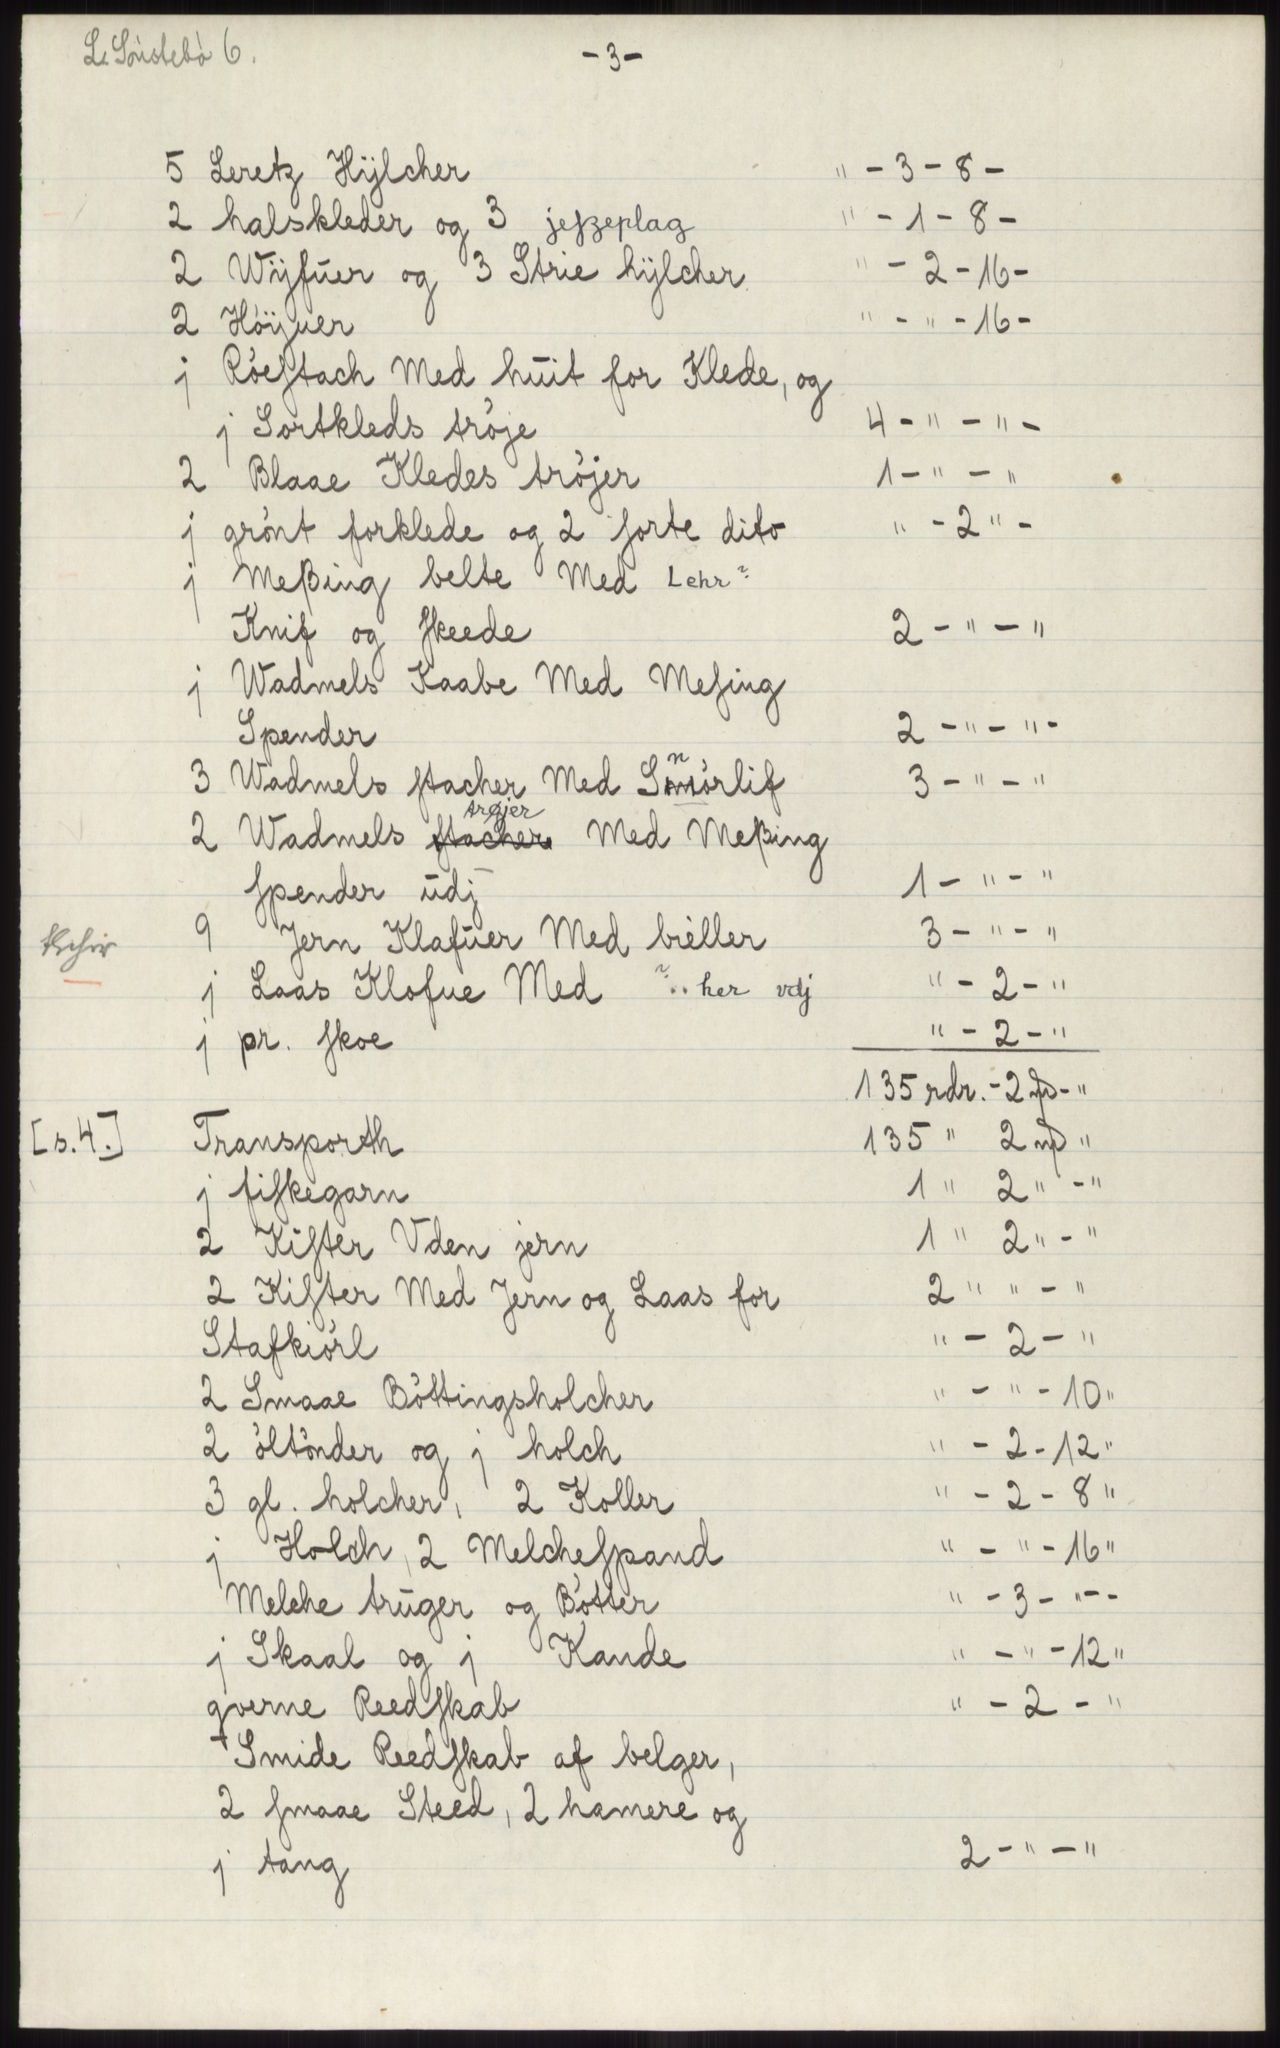 L. Sönstebö 6.
- 3 -
5 Leretz Hÿlcher " - 3 - 8 -
2 halskleder og 3 jeſzeplag " - 1 - 8 -
2 Wÿfuer og 3 Strie hÿlcher " - 2 - 16 -
2 Höÿuer " - " - 16 -
j Röeſtach Med huit for Klede, og
j Sortkleds tröje 4 - " - " -
2 Blaae Kledes tröjer 1 - " - "
j grönt forklede og 2 ſorte dito " - 2 " -
j Meßing belte Med Lehr ?
Knif og ſkeede 2 - " - "
j Wadmels Kaabe Med Meſing
Spender 2 - " - " -
3 Wadmels ſtacher Med Snörlif 3 - " - "
2 Wadmels ſtacher trøjer Med Meßing
ſpender udj 1 - " - "
9 Jern Klafuer Med bieller 3 - " - "
j Laas Klofue Med ?.. her vdj " - 2 - "
j pr. ſkoe " - 2 - "
135 rdr. - 2 mp - "
[s.4.] Transporth 135 " 2 mp "
j fiſkegarn 1 " 2 " - "
2 Kiſter Vden jern 1 " 2 " - "
2 Kiſter Med Jern og Laas for 2 " " - "
Stafkiörl " - 2 - "
2 Smaae Böttingsholcher " - " - 10 "
2 öltönder og j holch " - 2 - 12 "
3 gl. holcher, 2 Koller " - 2 - 8 "
j Holch, 2 Melcheſpand " - " - 16 "
Melche truger og Bötter " - 3 - " - -
j Skaal og j Kande " - " - 12 "
qverne Reedſkab " - 2 - "
+ Smide Reedſkab af belger,
2 ſmaae Steed, 2 hamere og
j tang 2 - " - "